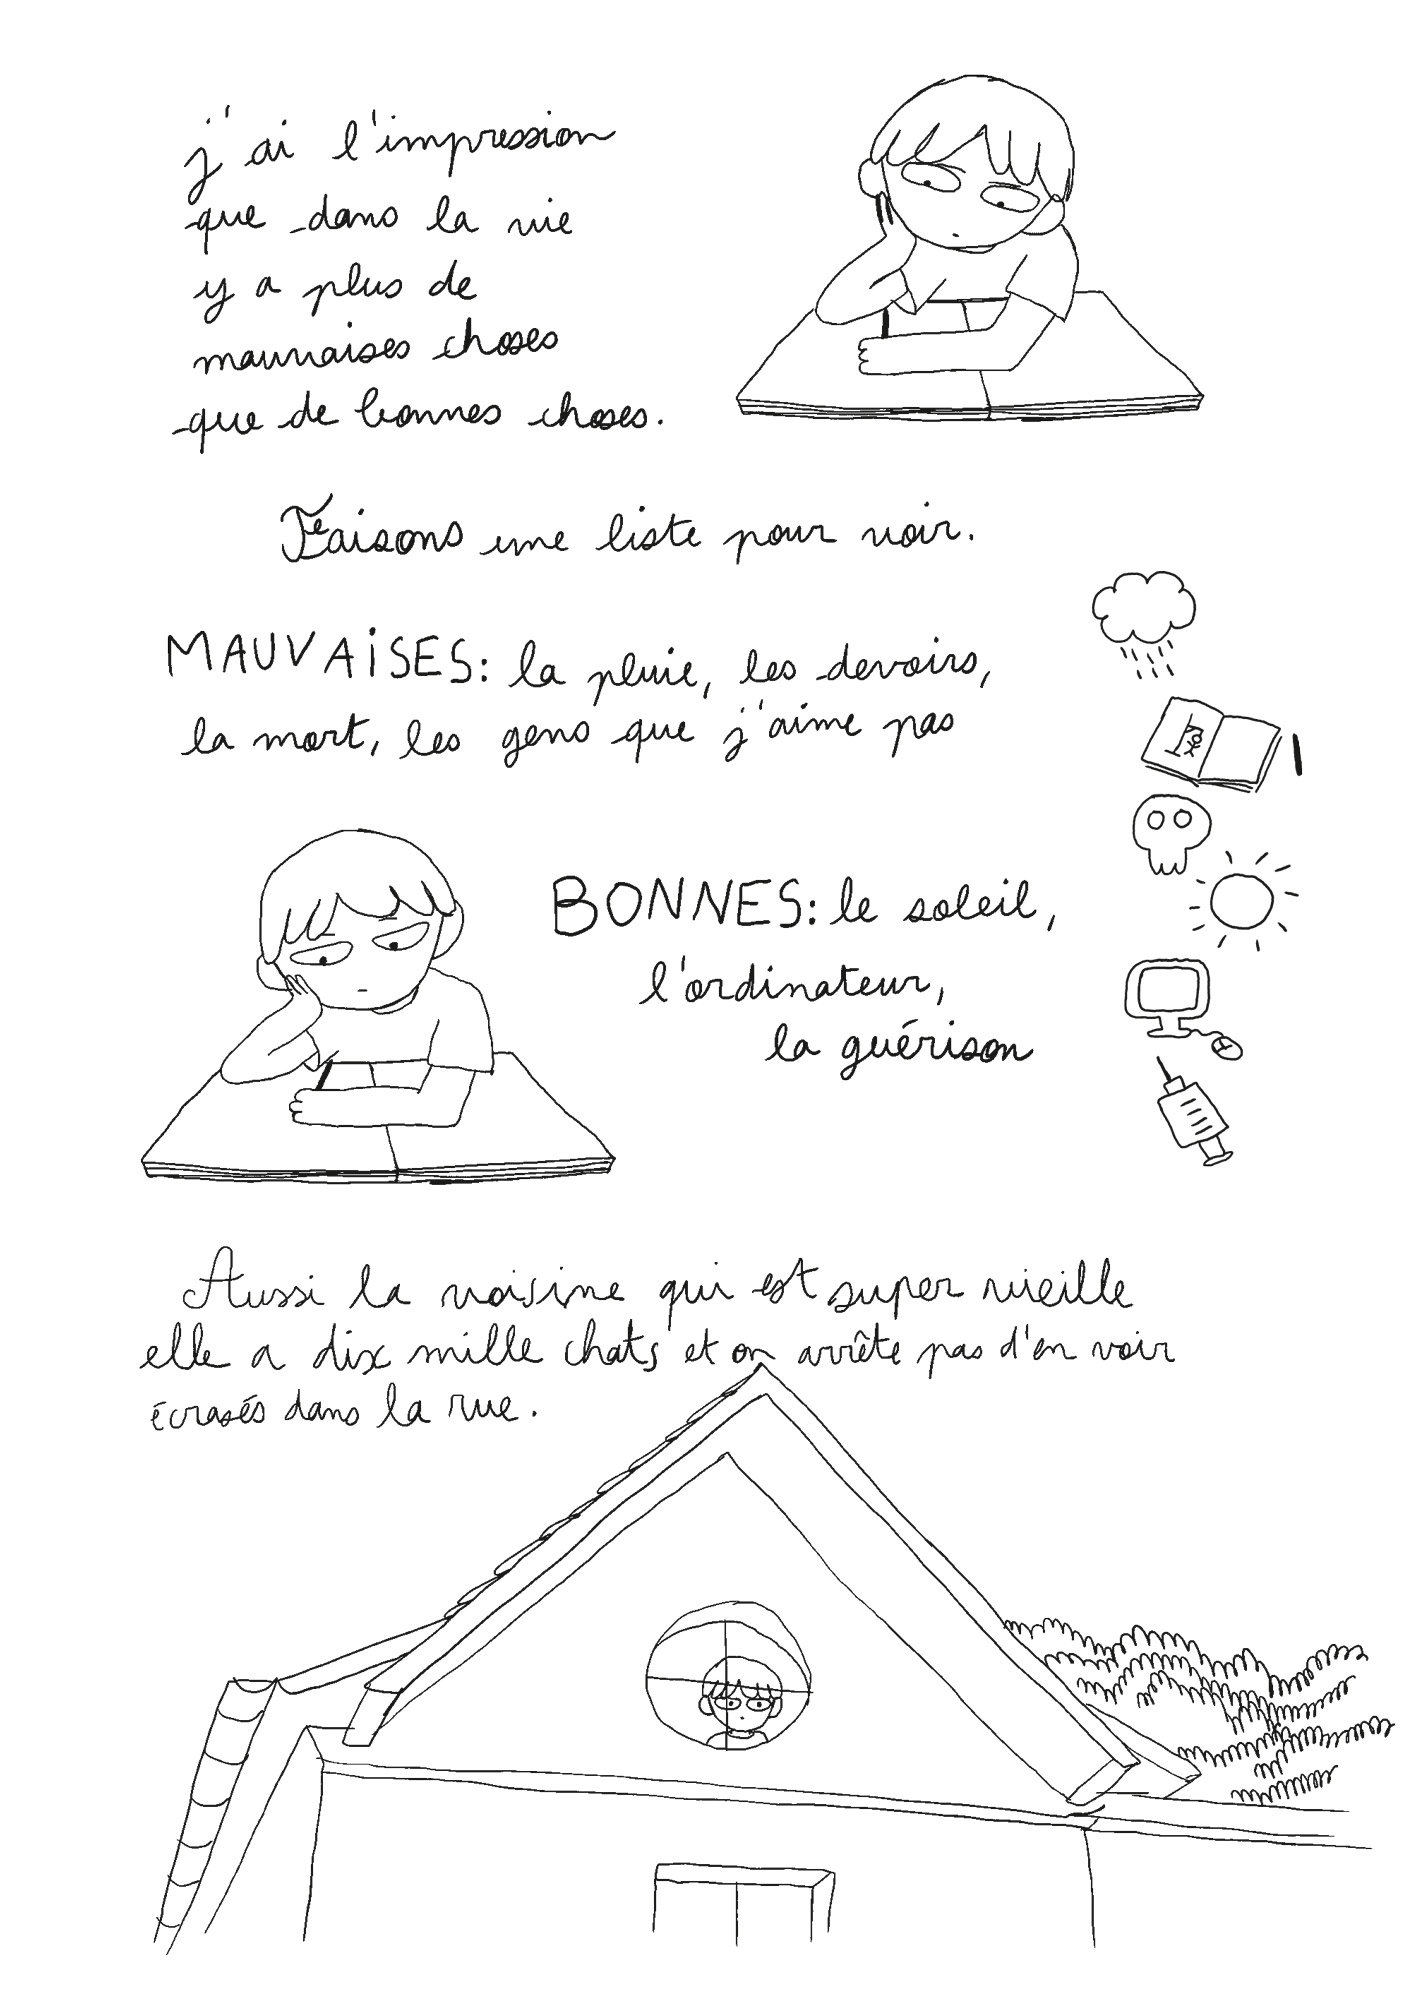 j'ai l'impression
que dans la vie
y a plus de
mauvaises choses
que de bonnes choses.
Faisons une liste pour voir.
MAUVAISES: la pluie, les devoirs,
la mort, les gens que j'aime pas
BONNES: le soleil,
l'ordinateur,
la guérison
Aussi la voisine qui est super vieille
elle a dix mille chats et on arrête pas d'en voir
écrasés dans la rue.